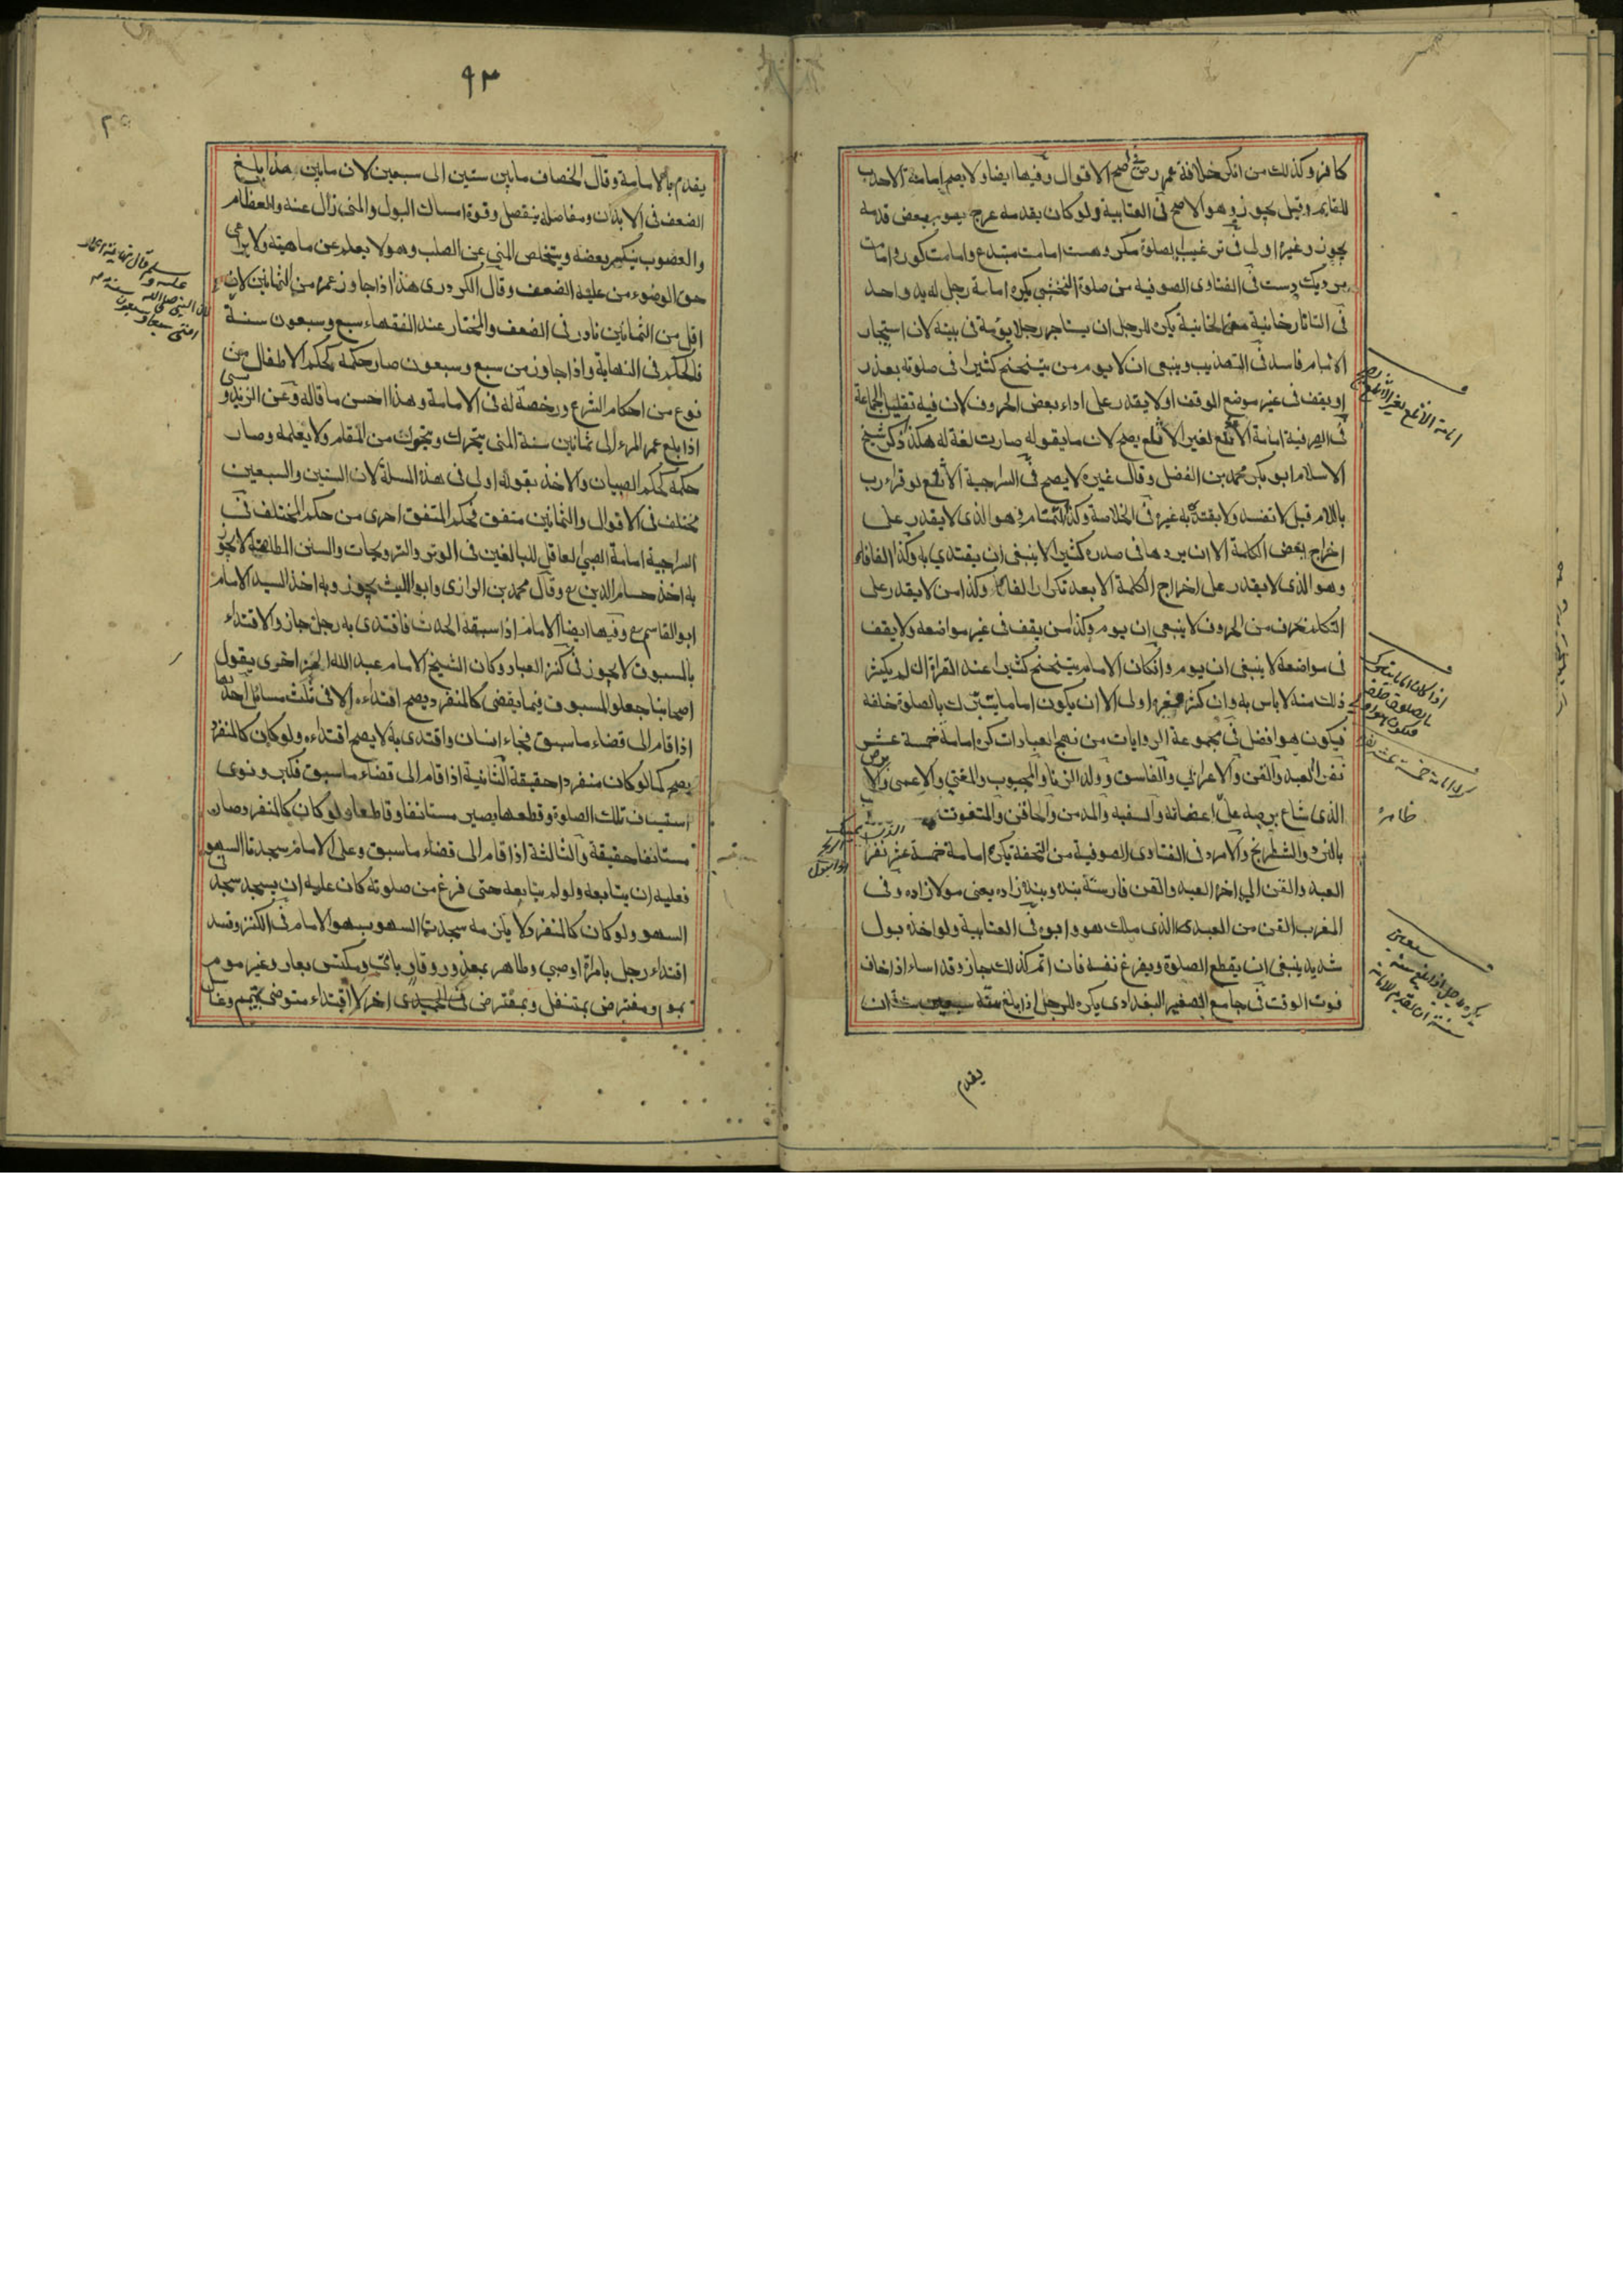 كافر وكذلك من انكر خلافة عمر رضـ اصح الاقوال وفيها ايضا ولا يصح امامة الاحدب
للقايم وقيل يجوز وهو الاصح في العتابية ولو كان بقدمه عرج يقوم ببعض قدمه
يجوز وغيره اولى في ترغيب الصلوة مكروهست امامت مبتدع وامامت كور وامامت
في الفتاوى الصوفية من صلوة النخشبي يكره امامة رجل له يد واحد
في التاتارخانية من الخانية يكره للرجل ان يستاجر رجلا يؤمه في بيته لان استيجار
الامام فاسد في التهذيب وينبغي ان لا يوم من يتنحنح كثيرا في صلوته بعذر
او يقف في غير موضع الوقف او لا يقدر على اداء بعض الحروف لان فيه تقليل الجماعة
في الصيرفية امامة الالثغ لغير الالثغ يصح لان ما يقوله صارت لغة له هكذا ذكر شيخ
الاسلام ابو بكر محمد بن الفضل وقال غيره لا يصح في السراجية الالثغ لو قراء رب
باللام قبل لا تفسد ولا يقتدى به غيره في الخلاصة وكذا التمتام هو الذي لا يقدر على
اخراج بعض الكلمة الا ان يردها في صدره كثيرا لا ينبغي ان يقتدي به وكذا الفافاء
وهو الذي لا يقدر على اخراج الكلمة الا بعد تكرار الفاء وكذا من لا يقدر على
التكلم بحرف من الحروف لا ينبغي ان يوم وكذا من يقف في غير مواضعه ولا يقف
في مواضعه لا ينبغي ان يوم وان كان الامام يتنحنح كثيرا عند القراة ان لم يكثر
ذلك منه لا باس به وان كثر فغيره اولى الا ان يكون اماما يتبرك بالصلوة خلفه
فيكون هو افضل في مجموعة الروايات من نهج العبادات كره امامة خمسة عشر
نفر العبد والقن والاعرابي والفاسق وولد الزنا والمجبوب والمغني والاعمى والابرص
الذي شاع برصه على اعضائه والسفيه والمدمن والحاقن والمتعوت
بالنرد والشطرنج والامرد في الفتاوى الصوفية من التحفة يكره امامة خمسة عشر نفرا
العبد والقن الى اخره العبد والقن فارسية بنده وبنده زاده يعني مولازاده وفي
المغرب القن من العبد الذي ملك هو وابوه في العتابية ولو اخذه بول
شديد ينبغي ان يقطع الصلوة ويفرغ نفسه فان اتم كذلك جاز وقد اساء اذا خاف
فوت الوقت في جامع الصغير البغدادي يكره للرجل اذا بلغ سنه سبعين سنة ان
يقدم
امامة الالثغ لغير الالثغ
كره امامة خمسة عشر نفر
٩٣
يقدم بالامامة وقال الخصاف ما بين ستين الى سبعين لان ما بين هذا بلغ
الضعف في الابدان ومفاصله ينفصل وقوة امساك البول والمني زال عنه والعظام
والعضوب ينكسر بعضه ويتخلص المني عن الصلب وهو لا يعلم عن ماهيته ولا يراعي
حق الوضوء من علية الضعف وقال الكردري هذا اذا جاوز عمره من الثمانين لان
اقل من الثمانين نادر في الضعف والمختار عند الفقهاء سبع وسبعون سنة
فالحكم في النهاية واذا جاوز من سبع وسبعون صار حكمه كحكم الاطفال من
نوع من احكام الشرع ورخصة له في الامامة وهذا احسن ما قاله وعن الزندوسي
اذا بلغ عمر المرء الى ثمانين سنة المني يتحرك ويتحرك من المقام ولا يعلمه وصار
حكمه كحكم الصبيان والاخذ بقوله اولى في هذه المسلة لان الستين والسبعين
مختلف في الاقوال والثمانين متفق فحكم المتفق احرى من حكم المختلف في
السراجية امامة الصبي العاقل للبالغين في الوتر والترويحات والسنن المطلقة لا يجوز
به اخذ حسام الدين وقال محمد بن الرازي وابو الليث يجوز وبه اخذ السيد الامام
ابو القاسم وفيها ايضا الامام اذا سبقه الحدث فاقتدى به رجل جاز والاقتداء
بالمسبوق لا يجوز في كنز العباد وكان الشيخ الامام عبد الله يقول
اصحابنا جعلوا المسبوق فيما يقضي كالمنفرد يصح اقتداءه الا في ثلث مسائل احديها
اذا قام الى قضاء ما سبق فجاء انسان واقتدى به لا يصح اقتداءه ولو كان كالمنفرد
يصح كما لو كان منفردا حقيقة الثانية اذا قام الى قضاء ما سبق فكبر ونوى
استيناف تلك الصلوة وقطعها يصير مستانفا وقاطعا ولو كان كالمنفرد صار
مستانفا حقيقة والثالثة اذا قام الى قضاء ما سبق وعلى الامام سجدتا السهو
فعليه ان يتابعه ولو لم يتابعه حتى فرغ من صلوته كان عليه ان يسجد سجدتي
السهو ولو كان كالمنفرد لا يلزمه سجدتا السهو بسهو الامام في الكنز وفسد
اقتداء رجل بامراة او صبي وطاهر بمعذور وقار بامي ومكتس بعار وغير موم
بموم ومفترض بمتنفل وبمفترض اخر لا اقتداء متوضي بمتيمم وغاسل